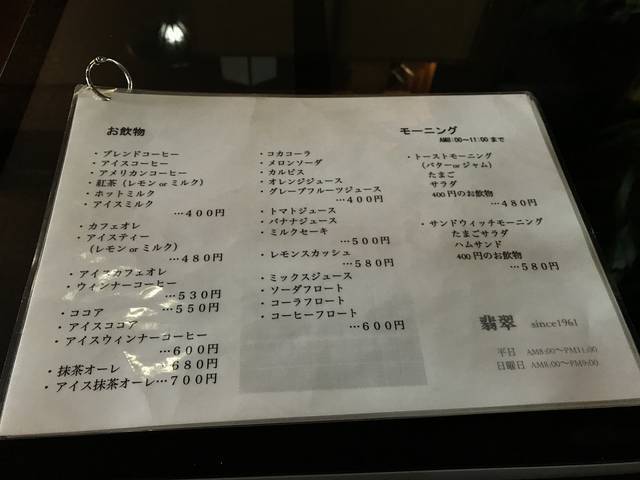 お飲物
・ブレンドコーヒー
・アイスコーヒー
・アメリカンコーヒー
・紅茶（レモン or ミルク）
・ホットミルク
・アイスミルク
…４００円
・カフェオレ
・アイスティー
（レモン or ミルク）
…４８０円
・アイスカフェオレ
・ウィンナーコーヒー
…５３０円
・ココア …５５０円
・アイスココア
・アイスウィンナーコーヒー
…６００円
・抹茶オーレ …６８０円
・アイス抹茶オーレ…７００円
・コカコーラ
・メロンソーダ
・カルピス
・オレンジジュース
・グレープフルーツジュース
…４００円
・トマトジュース
・バナナジュース
・ミルクセーキ
…５００円
・レモンスカッシュ
…５８０円
・ミックスジュース
・ソーダフロート
・コーラフロート
・コーヒーフロート
…６００円
モーニング
AM8:00〜11:00 まで
・トーストモーニング
（バター or ジャム）
たまご
サラダ
400 円のお飲物
…４８０円
・サンドウィッチモーニング
たまごサラダ
ハムサンド
400 円のお飲物
…５８０円
翡翠 since1961
平日 AM8:00〜PM11:00
日曜日 AM8:00〜PM9:00